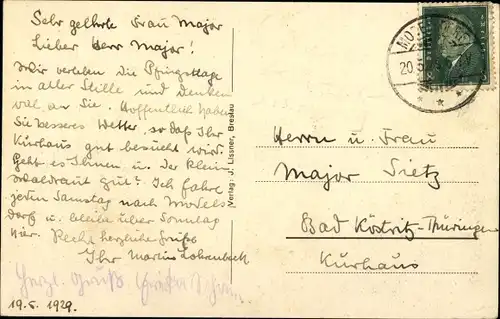 Sehr geehrte Frau Major
Lieber Herr Major!
Wir verleben die Pfingsttage
in aller Stille und denken
mal an Sie. Hoffentlich haben
Sie besseres Wetter, so daß Ihr
Kurhaus gut besucht wird.
Geht es Ihnen u. der klein
Waldraut gut? Ich fahre
jeden Samstag nach Models
dorf u. bleibe über Sonntag
hier. Recht herzliche Grüße
Ihr Martin
Herzl. Gruß
19.5.1929.
Verlag: J. Lissner, Breslau
20.5.
Herrn u. Frau
Major Sietz
Bad Köstritz-Thüringen
Kurhaus